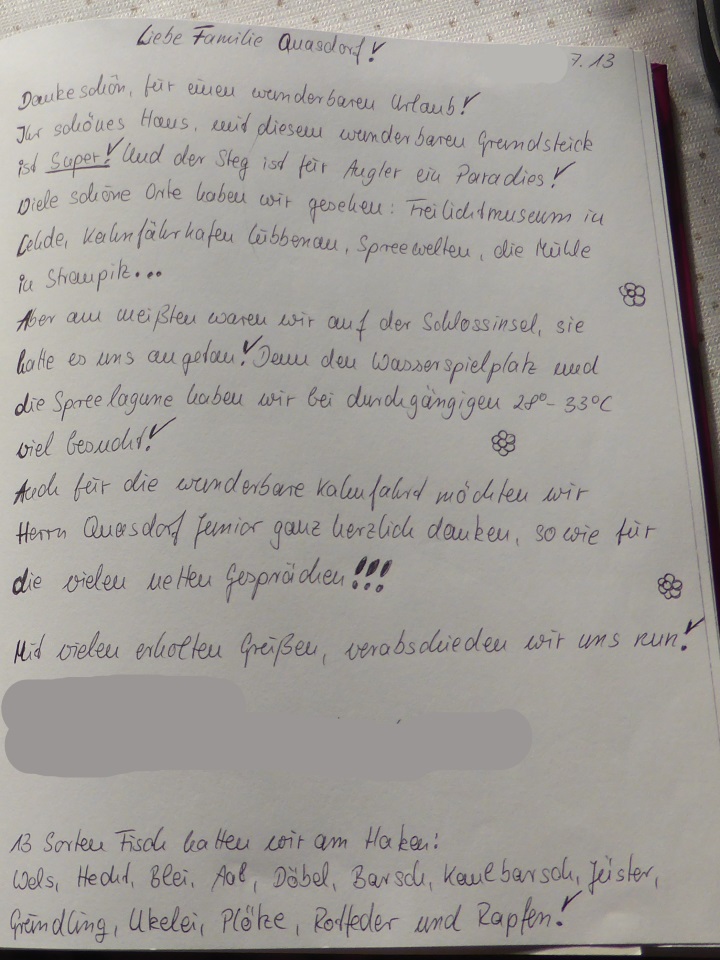 Liebe Familie Quasdorf!
7.13
Dankeschön, für einen wunderbaren Urlaub!
Ihr schönes Haus, mit diesem wunderbaren Grundstück
ist Super! Und der Steg ist für Angler ein Paradies!
Viele schöne Orte haben wir gesehen: Freilichtmuseum in
Lehde, Kahnfährhafen Lübbenau, Spreewelten, die Mühle
in Straupitz...
Aber am meißten waren wir auf der Schlossinsel, sie
hatte es uns angetan! Denn den Wasserspielplatz und
die Spreelagune haben wir bei durchgängigen 28° - 33°C
viel besucht!
Auch für die wunderbare Kahnfahrt möchten wir
Herrn Quasdorf Junior ganz herzlich danken, so wie für
die vielen netten Gesprächen!!!
Mit vielen erholten Grüßen, verabschieden wir uns nun!
13 Sorten Fisch hatten wir am Haken:
Wels, Hecht, Blei, Aal, Döbel, Barsch, Kaulbarsch, Jüster,
Gründling, Ukelei, Plötze, Rotfeder und Rapfen!